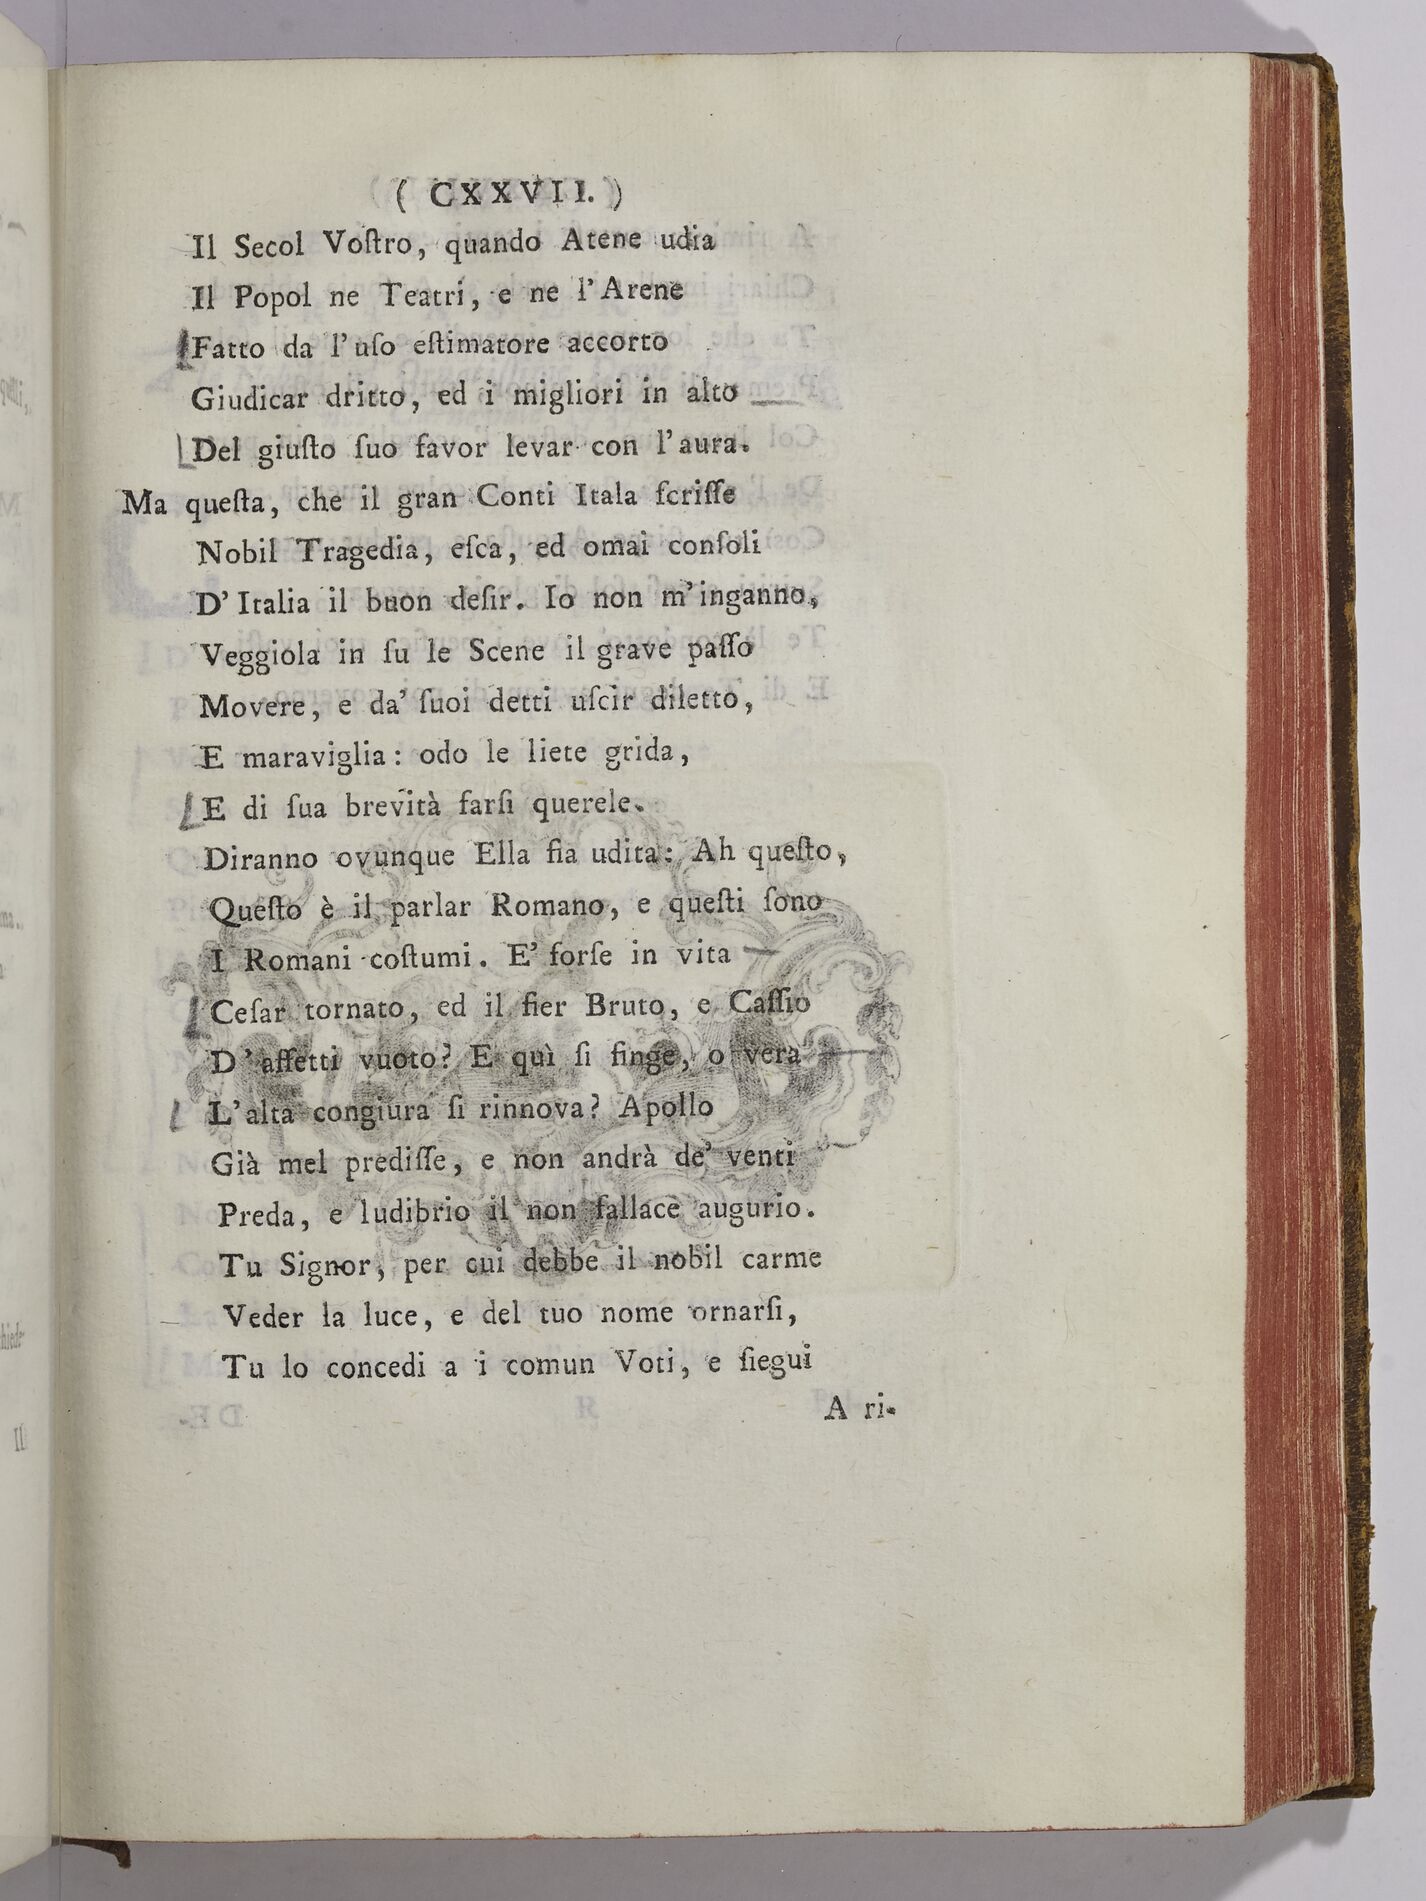 ( CXXVII. )
Il Secol Voſtro, quando Atene udia
Il Popol ne Teatri, e ne l'Arene
Fatto da l'uſo eſtimatore accorto
Giudicar dritto, ed i migliori in alto
Del giuſto ſuo favor levar con l'aura.
Ma queſta, che il gran Conti Itala ſcriſſe
Nobil Tragedia, eſca, ed omai conſoli
D'Italia il buon deſir. Io non m'inganno,
Veggiola in ſu le Scene il grave paſſo
Movere, e da' ſuoi detti uſcir diletto,
E maraviglia: odo le liete grida,
E di ſua brevità farſi querele.
Diranno ovunque Ella fia udita: Ah queſto,
Queſto è il parlar Romano, e queſti ſono
I Romani coſtumi. E' forſe in vita
Ceſar tornato, ed il fier Bruto, e Caſſio
D'affetti vuoto? E quì ſi finge, o vera
L'alta congiura ſi rinnova? Apollo
Già mel prediſſe, e non andrà de' venti
Preda, e ludibrio il non fallace augurio.
Tu Signor, per cui debbe il nobil carme
Veder la luce, e del tuo nome ornarſi,
Tu lo concedi a i comun Voti, e ſiegui
A ri-